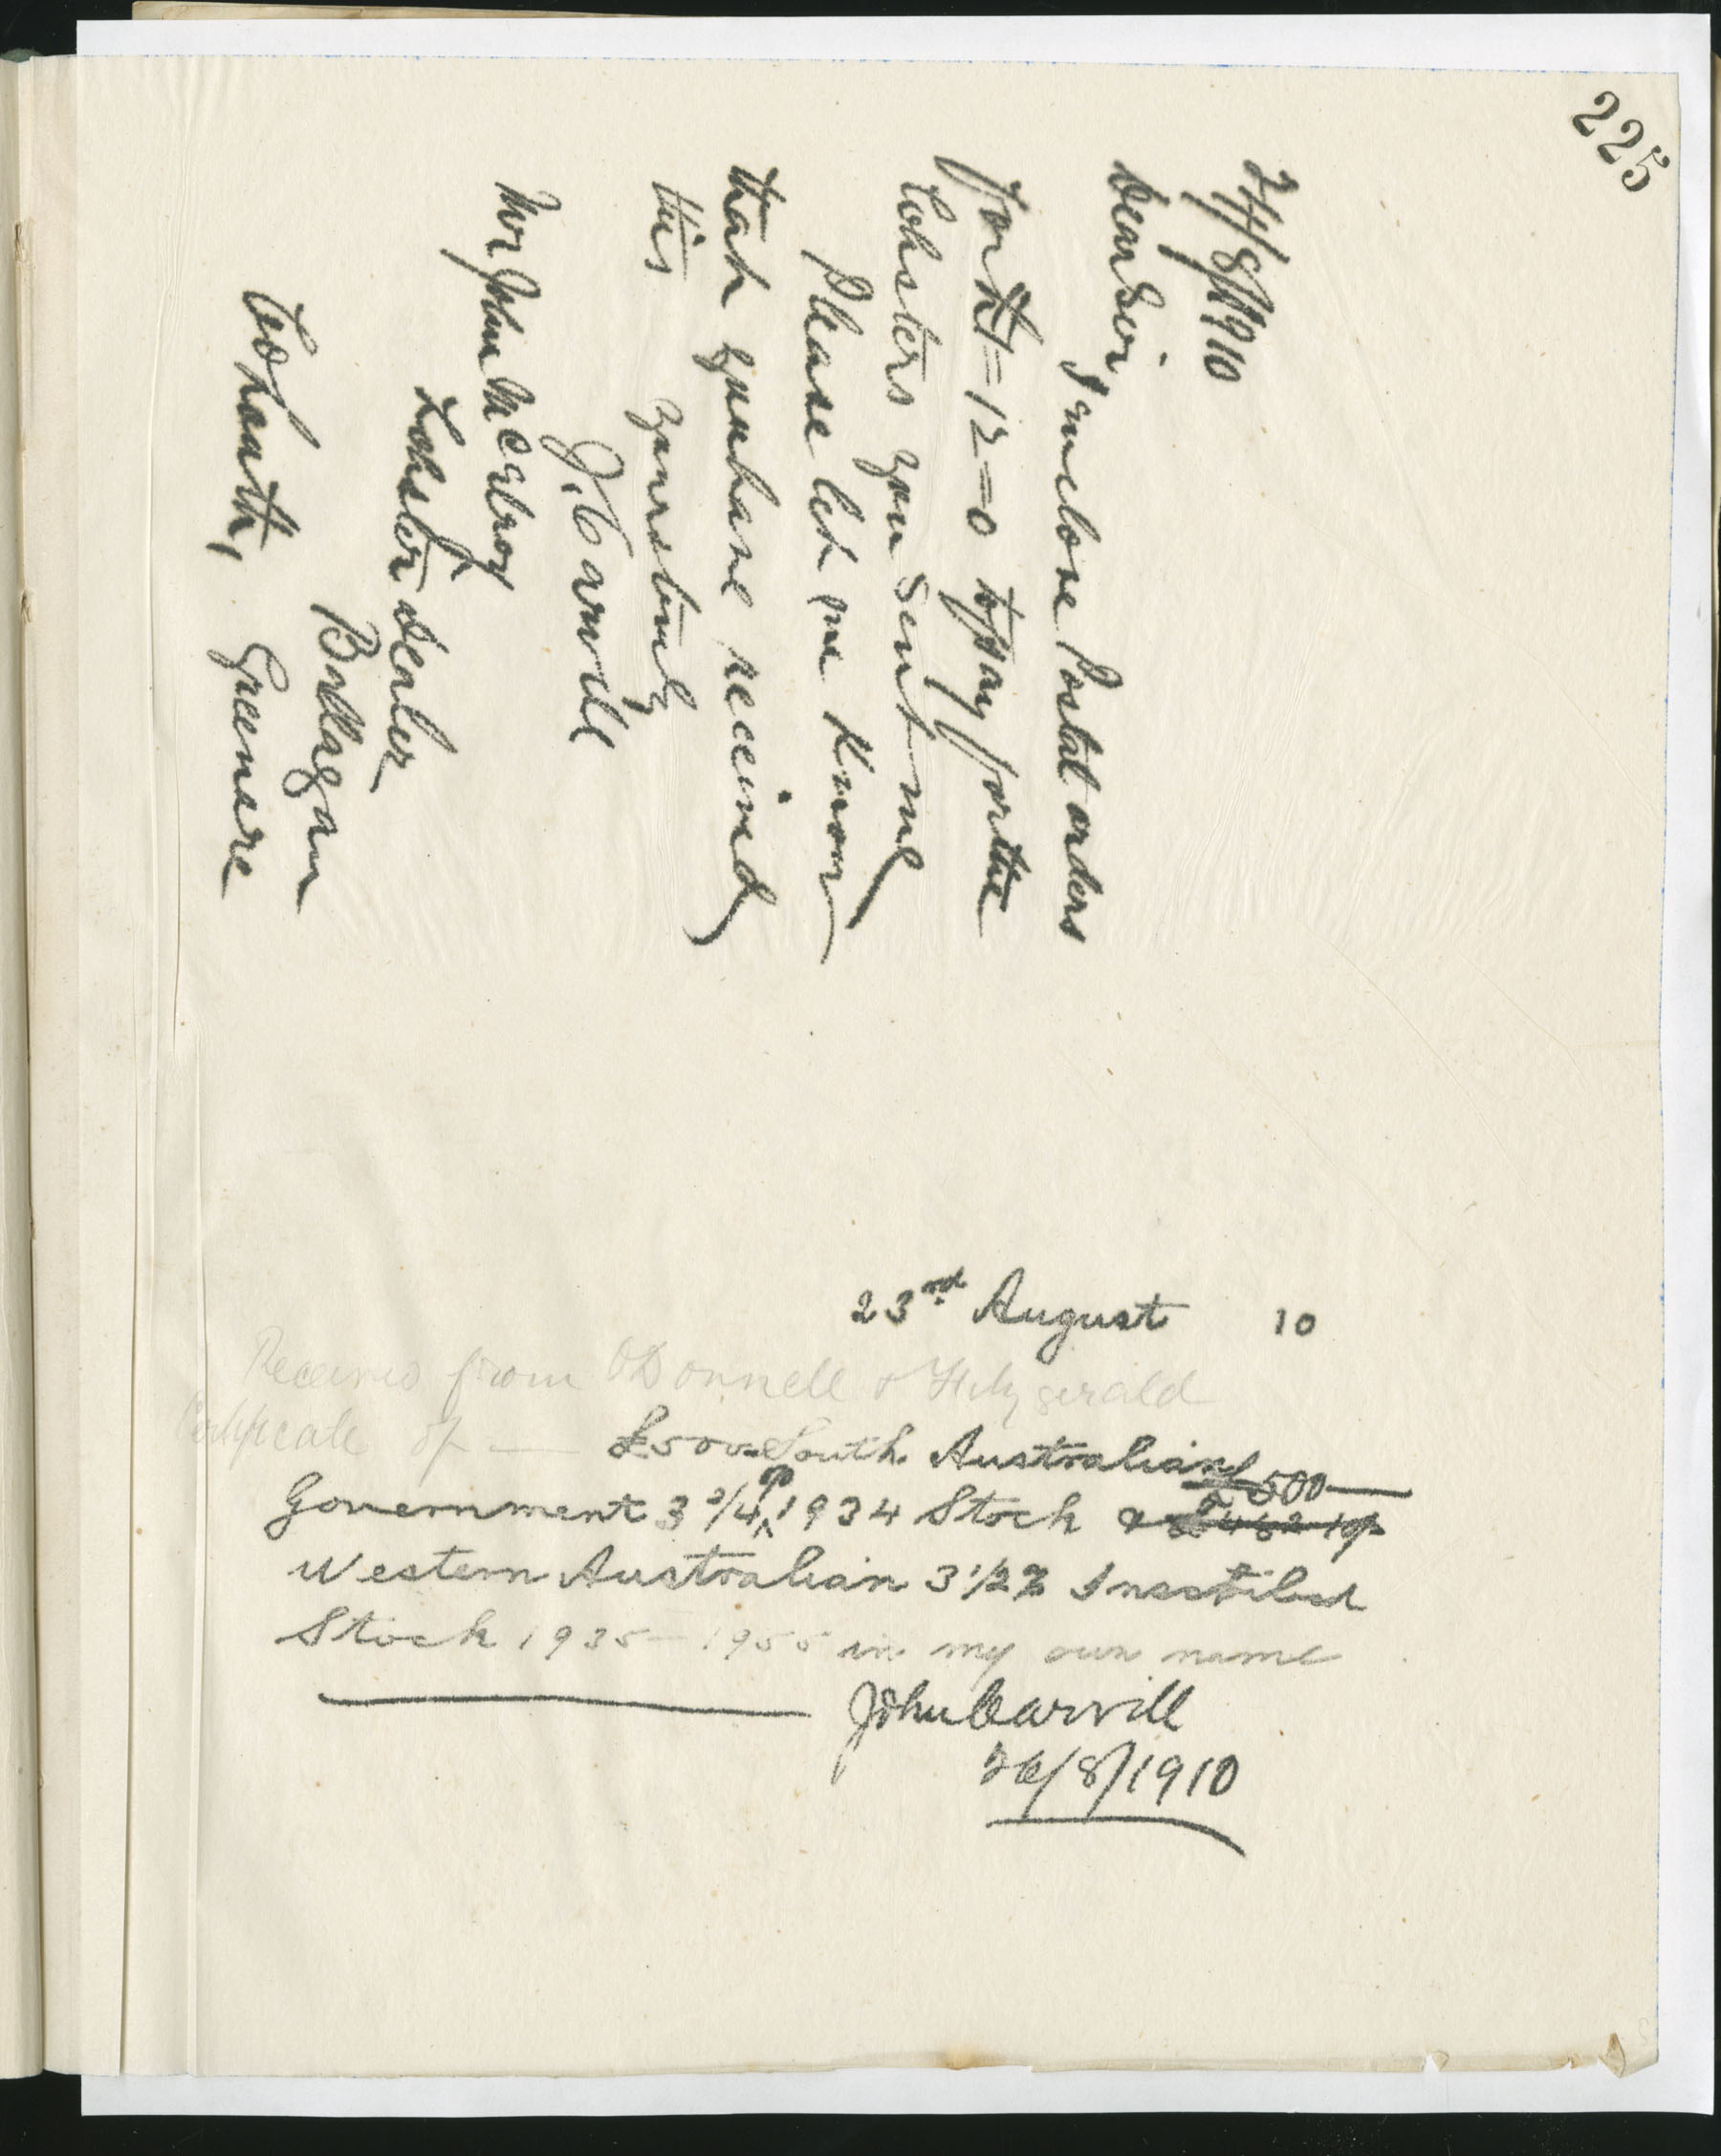 225
24/8/1910
Dear Sir
I enclose Postal orders
for £1=12=0 to pay for the
Lobsters you sent me
Please let me know
that you have received
this yours truly
J. Carvill
Mr John McElroy
Lobster Dealer
Ballagan
Greenore
Co Louth,
23rd August 10
Received from O'Donnell & Fitzgerald
Certificate of — £500 South Australian
£500—
Government 3 3/4 % 1934 Stock & £462 10/-
Western Australian 3 1/2 % Inscribed
Stock 1935 – 1955 in my own name
John Carvill
26/8/1910